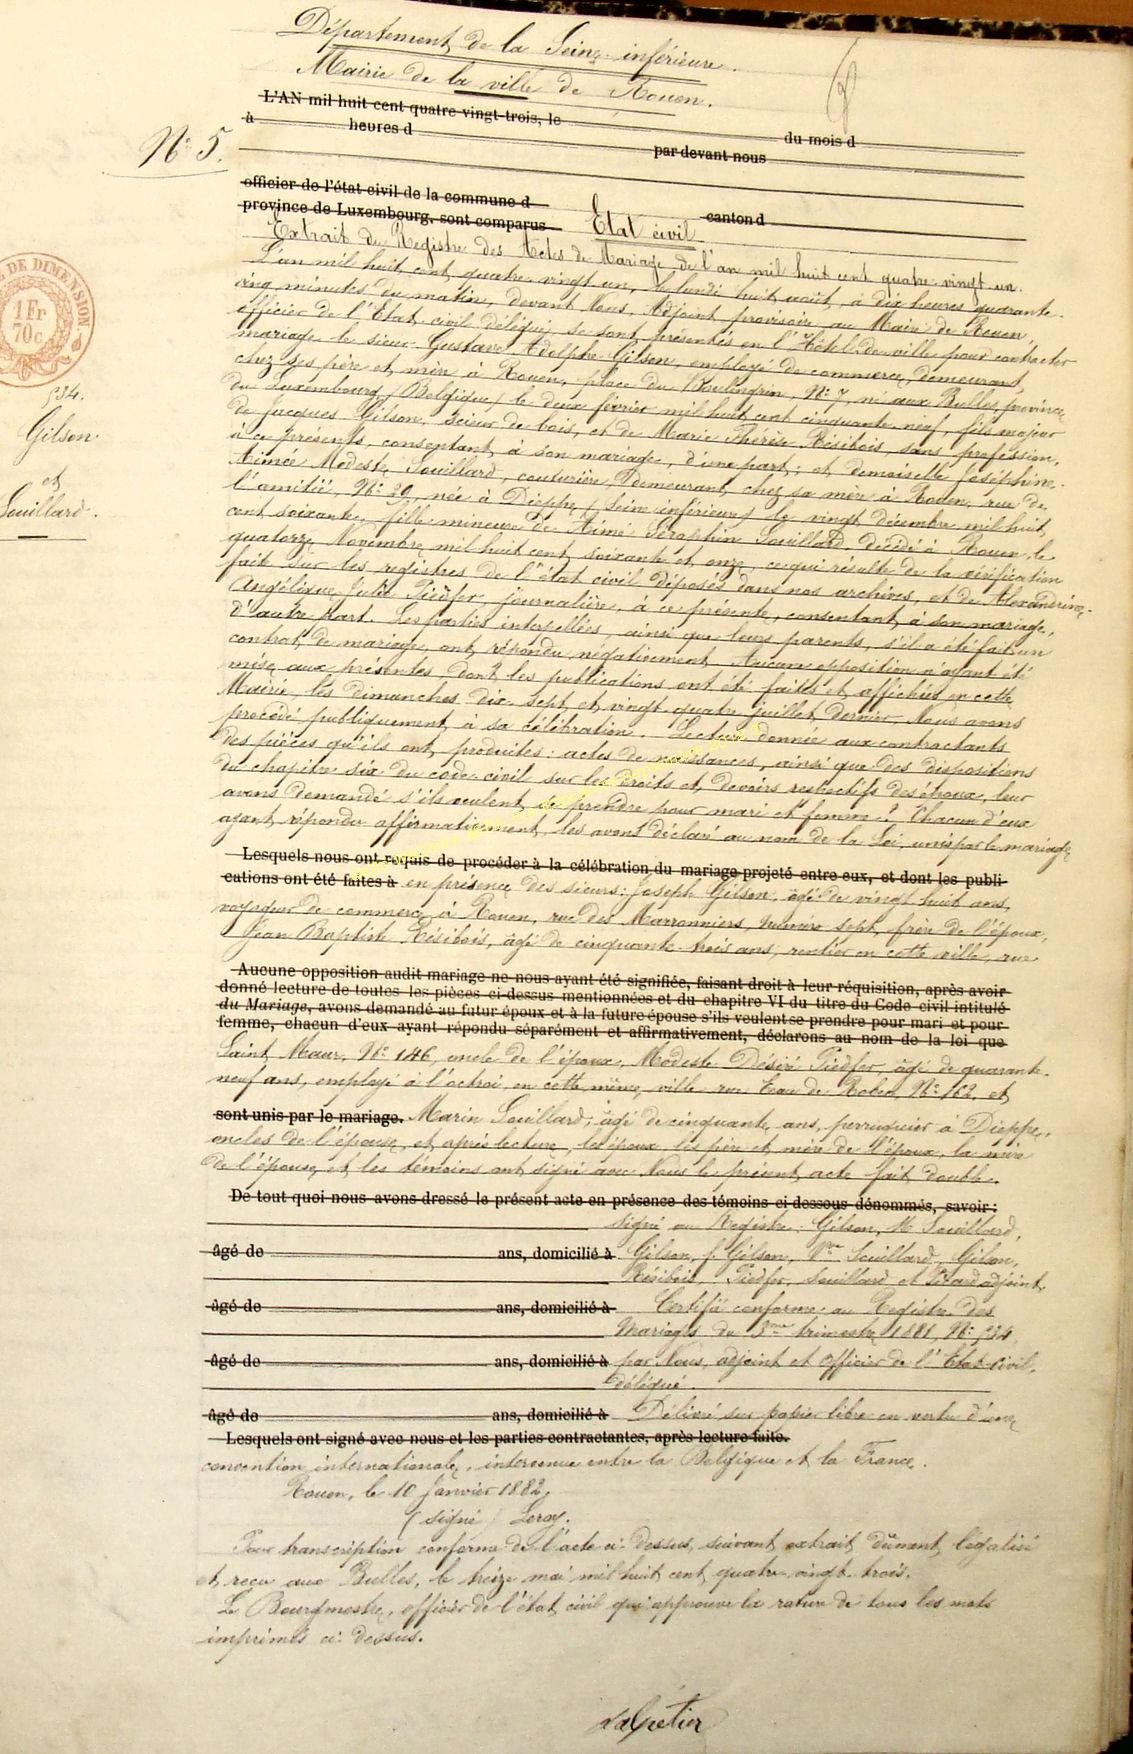 Département de la Seine inférieure.
Mairie de la ville de Rouen.
L'AN mil huit cent quatre-vingt-trois, le du mois d
à heures d par devant nous
N° 5.
officier de l'état civil de la commune d
province de Luxembourg, sont comparus canton d
Etat civil
Extrait du Registre des Actes de Mariage de l'an mil huit cent quatre-vingt-un.
L'an mil huit cent quatre vingt un, le lundi huit août, à dix heures quarante-
cinq minutes du matin, devant Nous, Adjoint provisoire au Maire de Rouen,
officier de l'Etat civil délégué, se sont présentés en l'Hôtel de ville pour contracter
mariage le sieur Gustave Adolphe Gilson, employé de commerce, demeurant
chez ses père et mère à Rouen, place du Boulingrin, N° 7, né aux Bulles, province
du Luxembourg (Belgique) le deux février mil huit cent cinquante neuf, fils majeur
de Jacques Gilson, scieur de bois, et de Marie Thérèse Résibois, sans profession,
à ce présents, consentant à son mariage, d'une part; et demoiselle Joséphine
Aimée Modeste Souillard, couturière, demeurant chez sa mère à Rouen, rue de
l'amitié, N° 29, née à Dieppe (Seine inférieure) le vingt décembre mil huit
cent soixante, fille mineure de Aimé Séraphin Souillard, décédé à Rouen, le
quatorze Novembre mil huit cent soixante et onze, ce qui résulte de la vérification
faite sur les registres de l'état civil déposés dans nos archives, et de Alexandrine
Angélique Julie Piedfer journalière, à ce présente, consentant à son mariage,
d'autre part. Les parties interpellées, ainsi que leurs parents, s'il a été fait un
contrat de mariage, ont répondu négativement. Aucune opposition n'ayant été
mise aux présentes dont les publications ont été faites et affichées en cette
Mairie, les dimanches dix-sept et vingt-quatre juillet dernier. Nous avons
procédé publiquement à sa célébration. Lecture donnée aux contractants
des pièces qu'ils ont produites: actes de naissances, ainsi que des dispositions
du chapitre six du code civil sur les droits et devoirs respectifs des époux, leur
avons demandé s'ils veulent se prendre pour mari et femme? Chacun d'eux
ayant répondu affirmativement, les avons déclaré au nom de la Loi, unis par le mariage
Lesquels nous ont requis de procéder à la célébration du mariage projeté entre eux, et dont les publi-
cations ont été faites à en présence des sieurs: Joseph Gilson, âgé de vingt huit ans,
voyageur de commerce à Rouen, rue des Marronniers, numéro sept, frère de l'époux,
Jean Baptiste Résibois, âgé de cinquante-trois ans, rentier en cette ville, rue
Aucune opposition audit mariage ne nous ayant été signifiée, faisant droit à leur réquisition, après avoir
donné lecture de toutes les pièces ci-dessus mentionnées et du chapitre VI du titre du Code civil intitulé
du Mariage, avons demandé au futur époux et à la future épouse s'ils veulent se prendre pour mari et pour
femme, chacun d'eux ayant répondu séparément et affirmativement, déclarons au nom de la loi que
Saint Maur, N° 146, oncle de l'époux, Modeste Désiré Piedfer, âgé de quarante-
neuf ans, employé à l'octroi, en cette même ville rue Eau de Robec N° 162, et
sont unis par le mariage. Marin Souillard, âgé de cinquante ans, perruquier à Dieppe,
oncles de l'épouse, et après lecture, les époux, les père et mère de l'époux, la mère
de l'épouse et les témoins ont signé avec Nous le présent acte fait double.
De tout quoi nous avons dressé le présent acte en présence des témoins ci-dessous dénommés, savoir:
signé au Registre: Gilson, M. Souillard,
âgé de ans, domicilié à Gilson, f. Gilson, Vve Souillard, Gilson,
Résibois, Piedfer, Souillard et adjoint
âgé de ans, domicilié à Certifié conforme au Registre des
Mariages du 3me trimestre 1881, N° 534
âgé de ans, domicilié à par Nous, adjoint et officier de l'Etat-civil,
délégué
âgé de ans, domicilié à Délivré sur papier libre en vertu d'une
Lesquels ont signé avec nous et les parties contractantes, après lecture faite.
convention internationale, intervenue entre la Belgique et la France.
Rouen, le 10 Janvier 1882,
(signé) Leroy.
Pour transcription conforme de l'acte ci-dessus, suivant extrait dûment légalisé
et reçu aux Bulles, le treize mai mil huit cent quatre-vingt-trois.
Le Bourgmestre, officier de l'état civil qui approuve la rature de tous les mots
imprimés ci-dessus.
DE DIMENSION
1 Fr
70 c
534.
Gilson
et
Souillard.